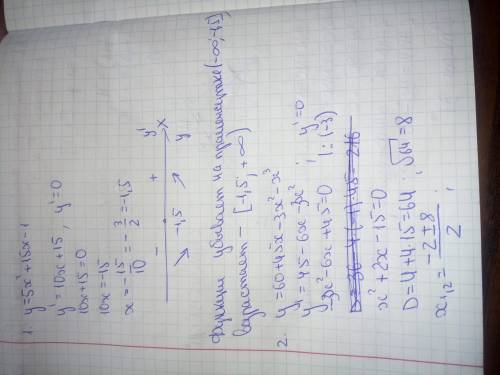 1. y=5x²+15x-1
y'=10x+15, y'=0
10x+15=0
10x=-15
x=-15/10=-3/2=-1,5
- + y'
-1,5 x
↘ ↗ y
Функция убывает на промежутке (-∞;-1,5]
возрастает - [-1,5; +∞)
2. y=60+45x-3x²-x³
y'=45-6x-3x² ; y'=0
-3x²-6x+45=0 | :(-3)
D=36-4·(-1)·45=216
x²+2x-15=0
D=4+4·15=64 ; √64=8
x₁,₂=(-2±8)/2 ;